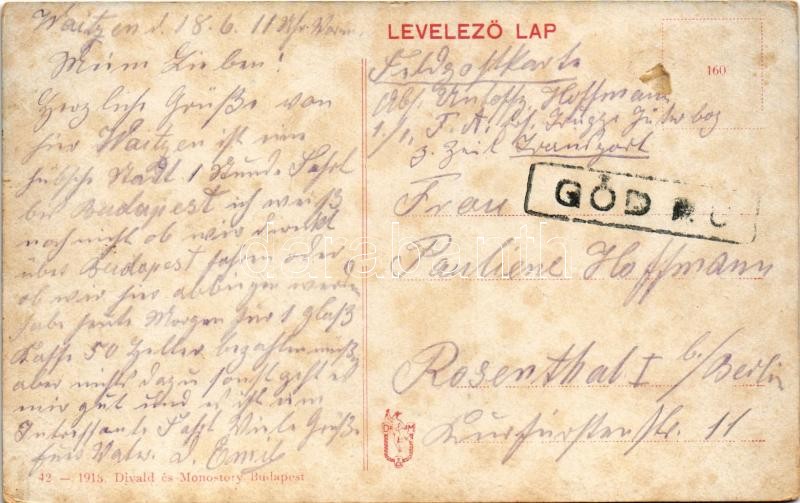 Waitzen d. 18.6. 11 Uhr Vorm.
Meine Lieben!
Herzliche Grüße von
hier Waitzen ist eine
hübsche Stadt 1 Stunde Fahrt
bei Budapest ich weiß
noch nicht ob wir direkt
über Budapest fahren oder
ob wir hier abbiegen werden
habe heute Morgen für 1 Glaß
Kaffe 50 Heller bezahlen müssen
aber nichts dazu sonst geht es
mir gut und es ist eine
Intressante Fahrt Viele Grüße
Euer Vater u. Emil
42 — 1915. Divald és Monostory Budapest
LEVELEZŐ LAP
160
Feldpostkarte
Abs. Untoffz. Hoffmann
1./1. F. A. Jüterbog
3. Zeit Transport
GÖD
Frau
Pauliene Hoffmann
Rosenthal I b/Berlin
Kurfürstenstr. 11
D M
darabanth